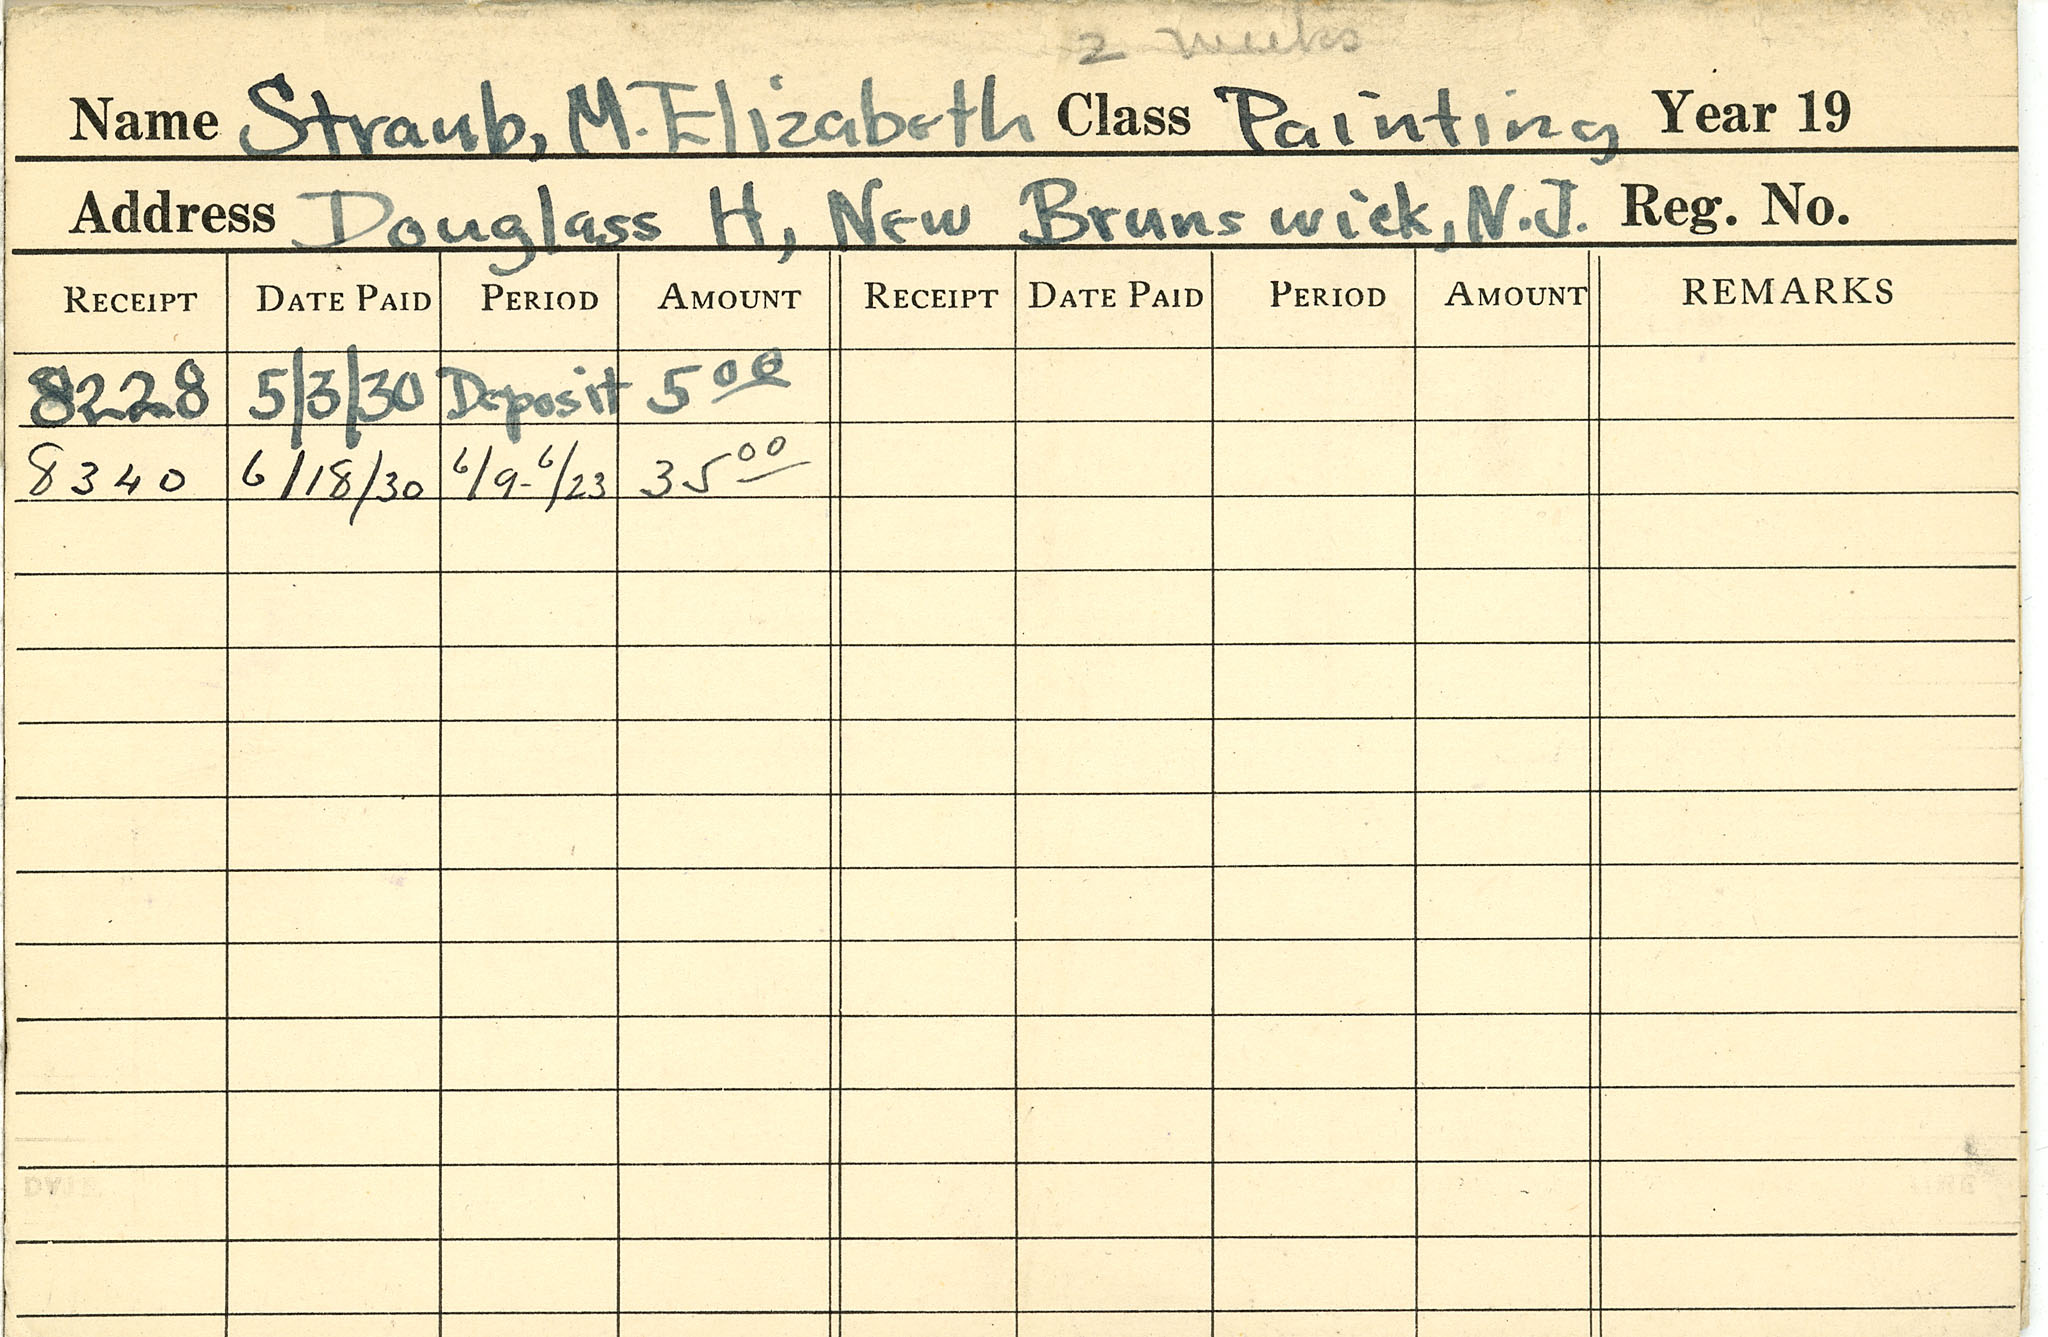 2 weeks
Name Straub, M. Elizabeth Class Painting Year 19
Address Douglass H, New Brunswick, N.J. Reg. No.
RECEIPT DATE PAID PERIOD AMOUNT RECEIPT DATE PAID PERIOD AMOUNT REMARKS
8228 5/3/30 Deposit 5 00
8340 6/18/30 6/9-6/23 35 00